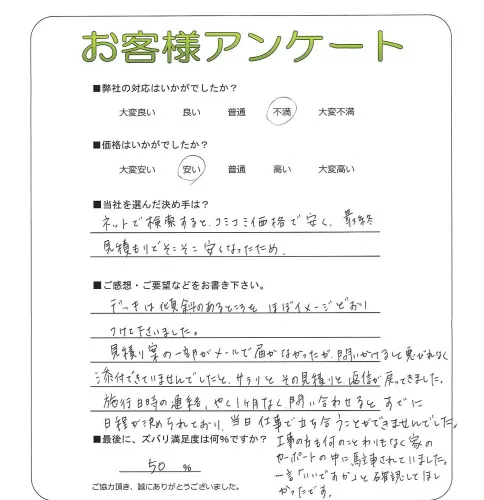 お客様アンケート
■弊社の対応はいかがでしたか？
大変良い 良い 普通 不満 大変不満
■価格はいかがでしたか？
大変安い 安い 普通 高い 大変高い
■当社を選んだ決め手は？
ネットで検索すると、コミコミ価格で安く、最終
見積もりでそこそこ安くなったため。
■ご感想・ご要望などをお書き下さい。
デッキは傾斜のあるところも ほぼイメージどおり
つけて下さいました。
見積り案の一部がメールで届かなかったが、問いかけると悪びれなく
添付できていませんでしたと、サラリと その見積りと返信が戻ってきました。
施行日時の連絡、やく1ヶ月なく問い合わせると、すでに
日程が決められており、当日仕事で立ち合うことができませんでした。
■最後に、ズバリ満足度は何％ですか？
50 ％
工事の方も何のことわりもなく家の
カーポートの中に駐車されていました。
一言「いいですか」と確認してほし
かったです。
ご協力頂き、誠にありがとうございました。